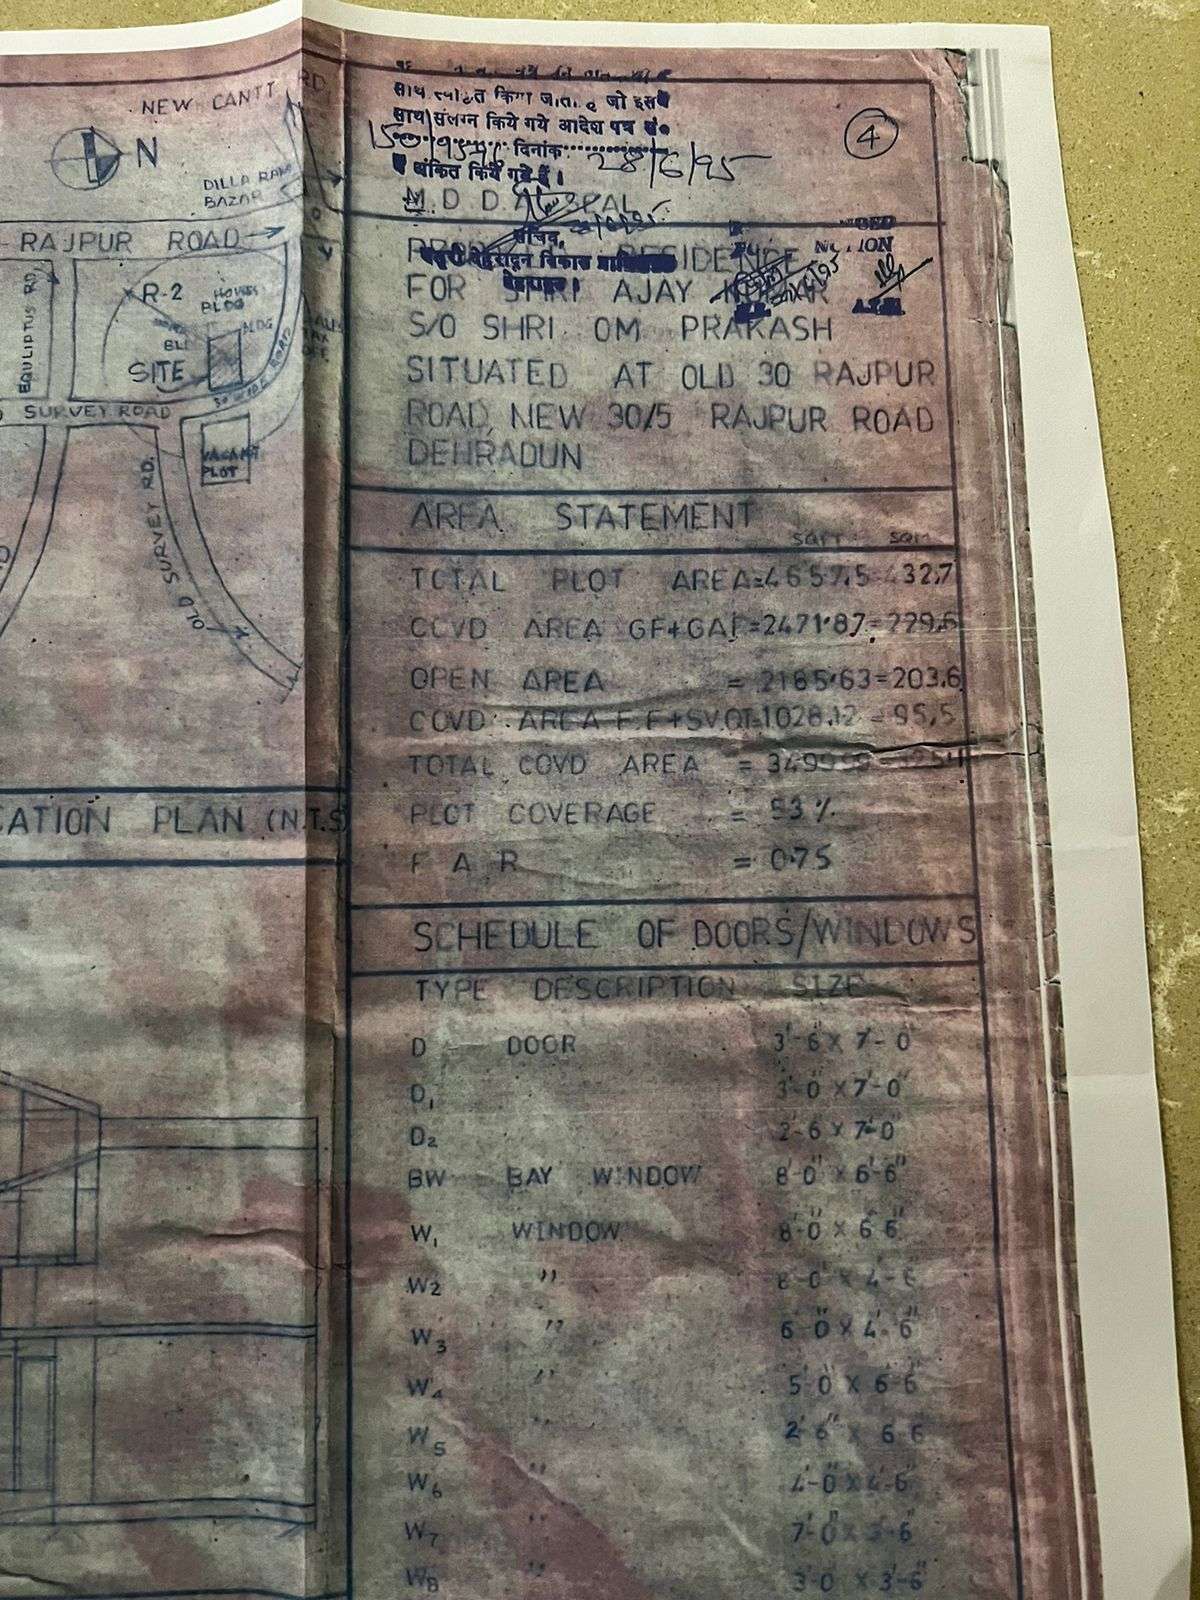 NEW CANTT RD.
N
DILLA RAM
BAZAR
RAJPUR ROAD
R-2
HOUSES
BLDG
BLDG
SITE
EQULIPTUS RD.
30' WIDE ROAD
SURVEY ROAD
VACANT
PLOT
OLD SURVEY RD.
CATION PLAN (N.T.S)
साथ स्वीकृत किया जाता है जो इसके
साथ संलग्न किये गये आदेश पत्र सं०
दिनांक 28/6/95
अंकित किये गये हैं।
4
M.D.D.A.
सचिव,
देहरादून विकास
FOR SHRI AJAY KUMAR
S/O SHRI OM PRAKASH
SITUATED AT OLD 30 RAJPUR
ROAD, NEW 30/5 RAJPUR ROAD
DEHRADUN
AREA STATEMENT
SQFT SQM
TOTAL PLOT AREA=4657.5=432.7
COVD AREA GF+GAR=2471.87=229.6
OPEN AREA = 2185.63=203.6
COVD. AREA F.F+SV.QT=1028.12 = 95.5
TOTAL COVD AREA = 3499.99
PLOT COVERAGE = 53 %
F A R = 0.75
SCHEDULE OF DOORS/WINDOWS
TYPE DESCRIPTION SIZE
D DOOR 3'-6" X 7'-0"
D1 3'-0" X 7'-0"
D2 2'-6 X 7'-0"
BW BAY WINDOW 8'-0" X 6'-6"
W1 WINDOW 8'-0" X 6'6"
W2 " 8'-0" X 4'-6"
W3 " 6'-0" X 4'-6"
W4 " 5'0" X 6'6"
W5 " 2'6" X 6'6
W6 " 4'-0" X 4'-6"
W7 " 7'-0" X 3'-6"
W8 " 3'-0 X 3'-6"